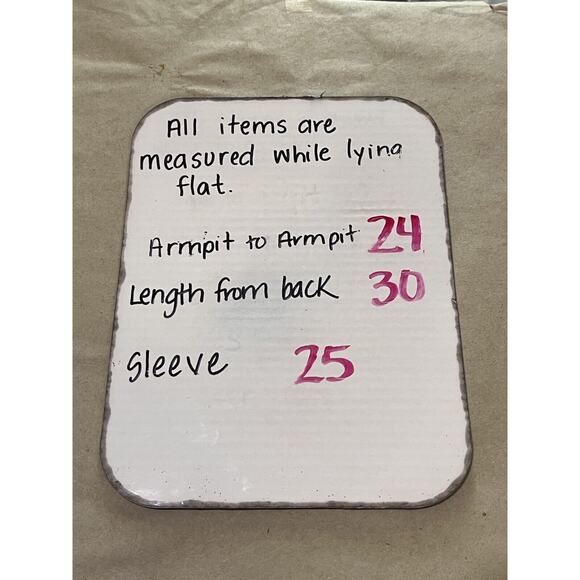 All items are
measured while lying
flat.
Armpit to Armpit 24
Length from back 30
Sleeve 25